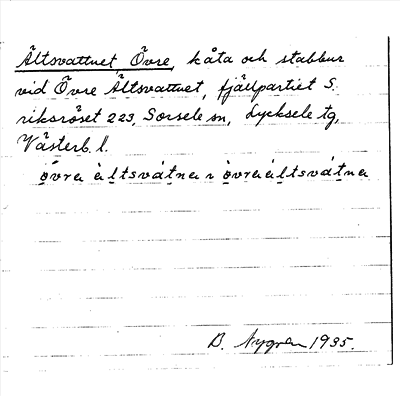 Ältsvattnet Övre, kåta och stabbur
vid Övre Ältsvattnet, fjällpartiet S.
riksröset 223, Sorsele sn, Lycksele tg,
Västerb. l.
övra àltsvátnə
B. Nygren 1935.